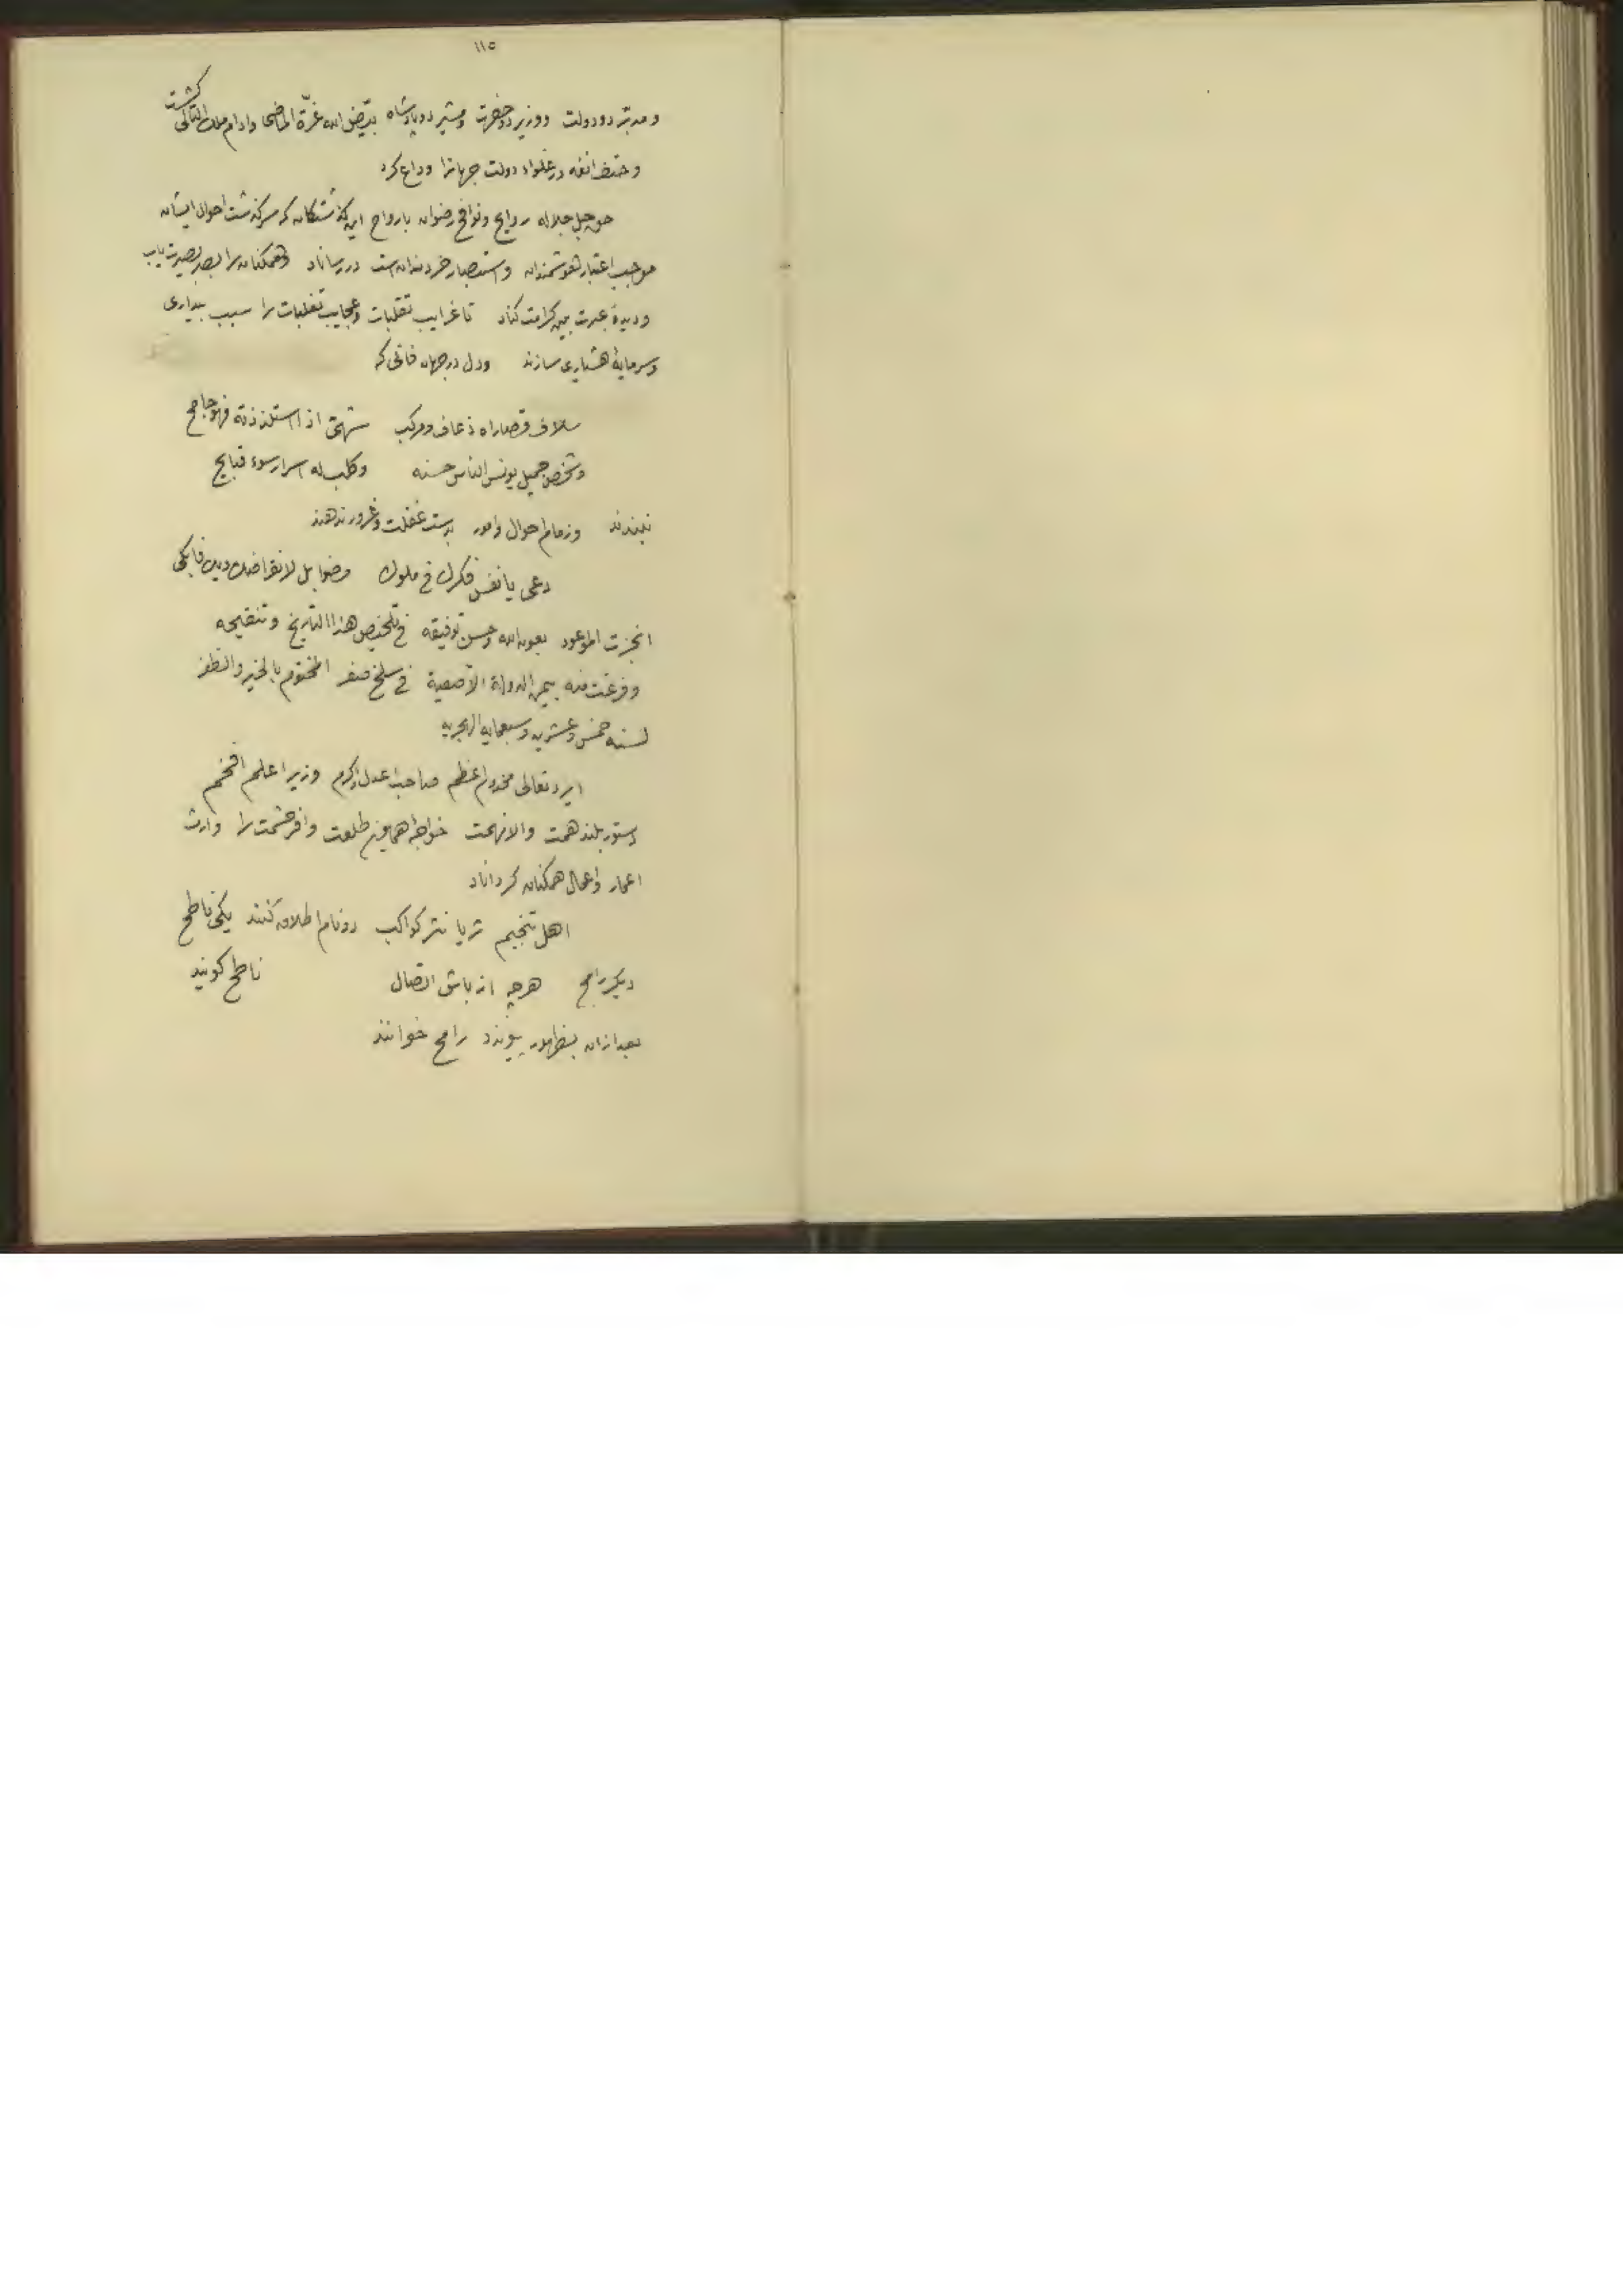 ١١٥
و مدبّر دو دولت و وزیر دو حضرت و مشیر دو پادشاه بیّض الله غرّة الماضی وادام ملك الثانی کشت
و حتف انفه در غلواء دولت جهانرا وداع کرد
حق جل جلاله روایح و نوافح رضوان بارواح این کذشتکان که سرکذشت احوال ایشان
موجب اعتبار هوشمندان و استبصار خردمندان است در رساناد و همکنانرا بصر بصیرت یاب
و دیدهٔ عبرت بین کرامت کناد تا غرایب تقلبات و عجایب تغلبات را سبب بیداری
و سرمایهٔ هشیاری سازند و دل در جهان فانی که
سلاف قصاراه ذعاف و مرکب شهیّ اذا استلذذته فهو جامح
و شخص جمیل یونس الناس حسنه و کلب له اسرار سوء قبایح
نبندند و زمام احوال و امور بدست غفلت و غرور ندهند
دعی یا نفس فکرك فی ملوك مضوا بل لانقراضك دین فابکی
انجزت الموعود بعون الله و حسن توفیقه فی تلخیص هذا التاریخ و تنقیحه
و فرغت منه بیمن الدولة الآصفیة فی سلخ صفر المختوم بالخیر و الظفر
لسنه خمس و عشرین و سبعمایه الهجریه
ایزد تعالی مخدوم اعظم صاحب اعدل اکرم وزیر اعلم افخم
دستور بلند همت والا نهمت خواجه همایون طلعت وافر حشمت را وارث
اعمار و اعمال همکنان کرداناد
اهل تنجیم ثریا نثر کواکب دو نام اطلاق کنند یکی ناطح
دیکر رامح هرچه از باش اتصال ناطح کویند
بعد ازان بظهور پیوندد رامح خوانند